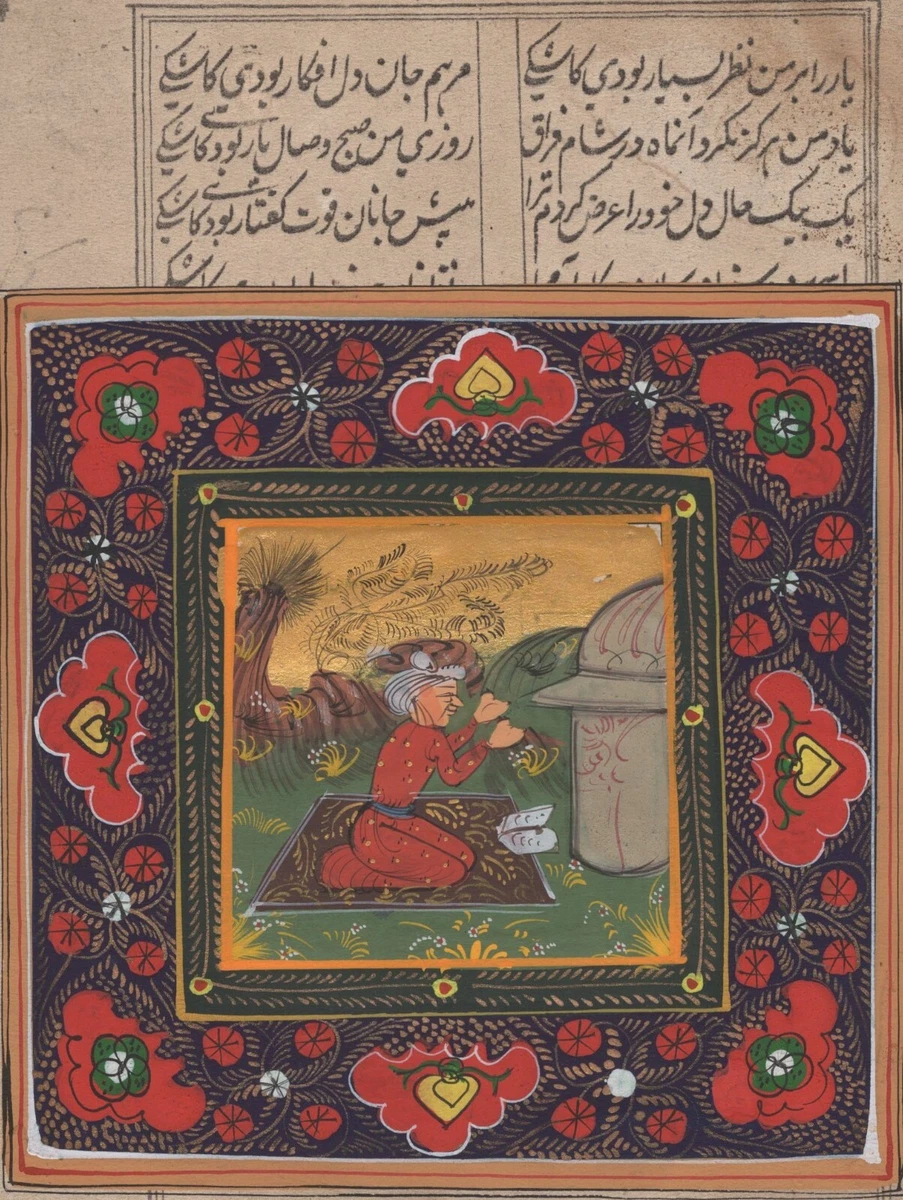 یار را بر من نظر بسیار بودی کاشکی مرهم جان دل افکار بودی کاشکی
یاد من هرکز نکرد آنماه در شام فراق روزی من صبح وصال یار بودی کاشکی
یک بیک حال دل خود را عرض کردم ترا پیش جانان قوت کفتار بودی کاشکی